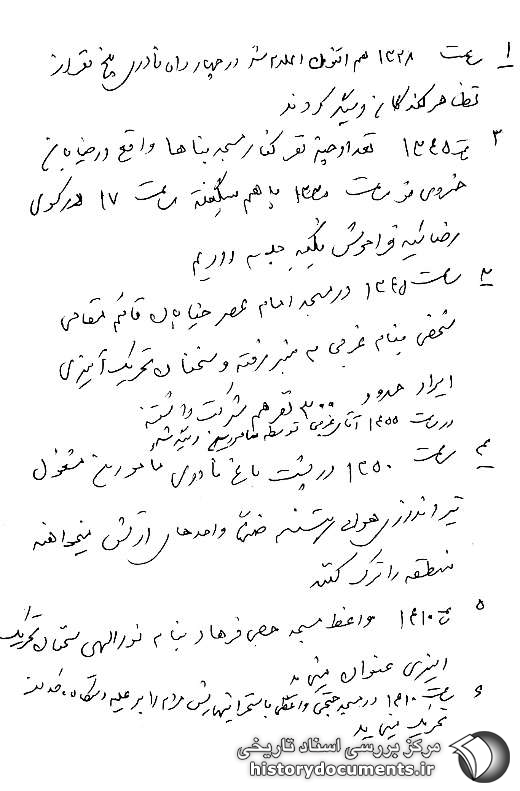 ۱ ساعت ۱۳۳۸ هم اکنون اعلام شد در چهار راه نادری پنج نفر از
تظاهر کنندگان دستگیر کردند
۲ ساعت ۱۳۴۵ تعداد چند نفر کنار مسجد بناها واقع در خیابان
خسروی نو ساعت ۱۳۳۰ باهم میگفتند ساعت ۱۷ در کوی
رضائیه فراموش نکنید جلسه داریم
۳ ساعت ۱۳۴۵ در مسجد امام عصر خیابان قائم مقامی
شخصی بنام غربی به منبر رفته و سخنان تحریک آمیزی
ایراد حدود ۳۰۰ نفر هم شرکت داشتند
در ساعت ۱۴۵۵ آقای غربی توسط مامورین دستگیر شد
۴ ساعت ۱۲۵۰ در پشت باغ نادری مامورین مشغول
تیراندازی هوائی هستند ضمناً واحدهای ارتش میخواهند
منطقه را ترک کنند
۵ ساعت ۱۴۱۰ واعظ مسجد حاجی فرهاد بنام نورالهی سخنان تحریک
امیزی عنوان مینماید
۶ ساعت ۱۴۱۰ در مسجد واعظی با سخنانیهایش مردم را بر علیه دستگاه
تحریک مینماید
مرکز بررسی اسناد تاریخی
historydocuments.ir